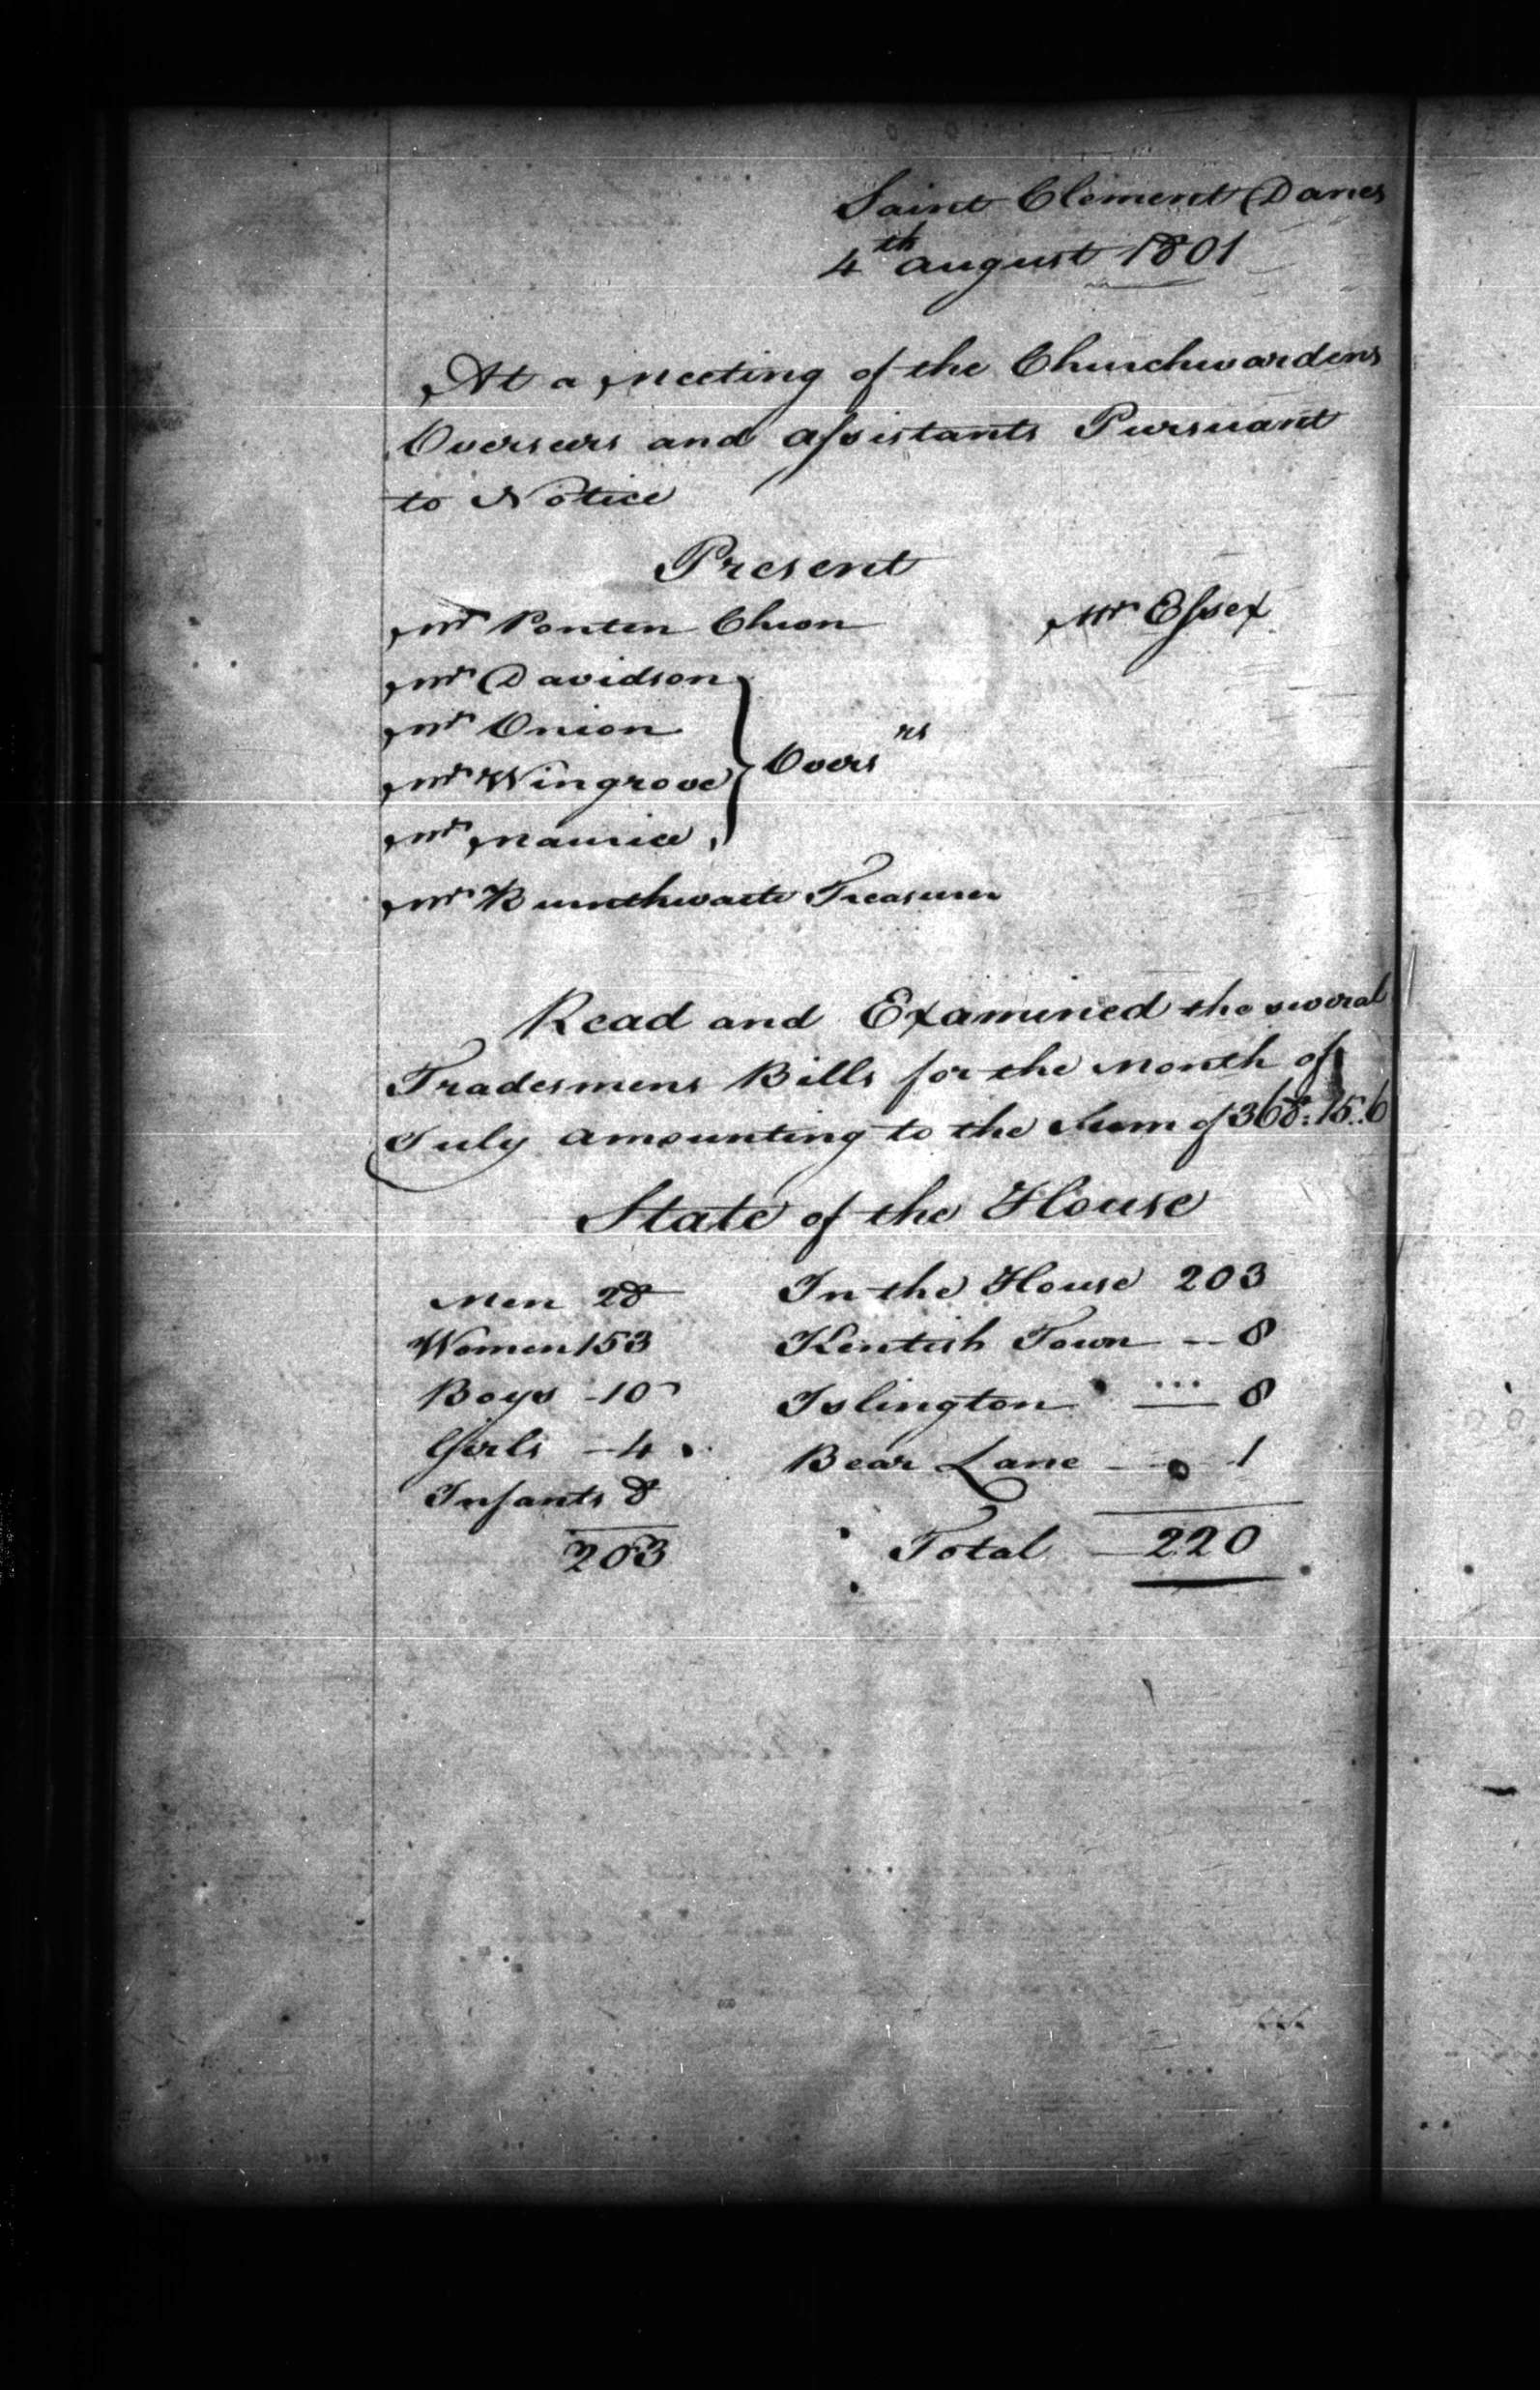 Saint Clement Danes
4th august 1801
At a Meeting of the Churchwardens
Overseers and assistants Pursuant
to Notice
Present
Mr Ponten Chwn Mr Essex
Mr Davidson
Mr Onion
Mr Wingrove Overs rs
Mr Maurice
Mr Burnthwaite Treasurer
Read and Examined the several
Tradesmens Bills for the Month of
July amounting to the Sum of 368:15:6
State of the House
Men 28 In the House 203
Women 153 Kentish Town -- 8
Boys - 10 Islington ... 8
Girls - 4 Bear Lane - 1
Infants 8
203 Total 220